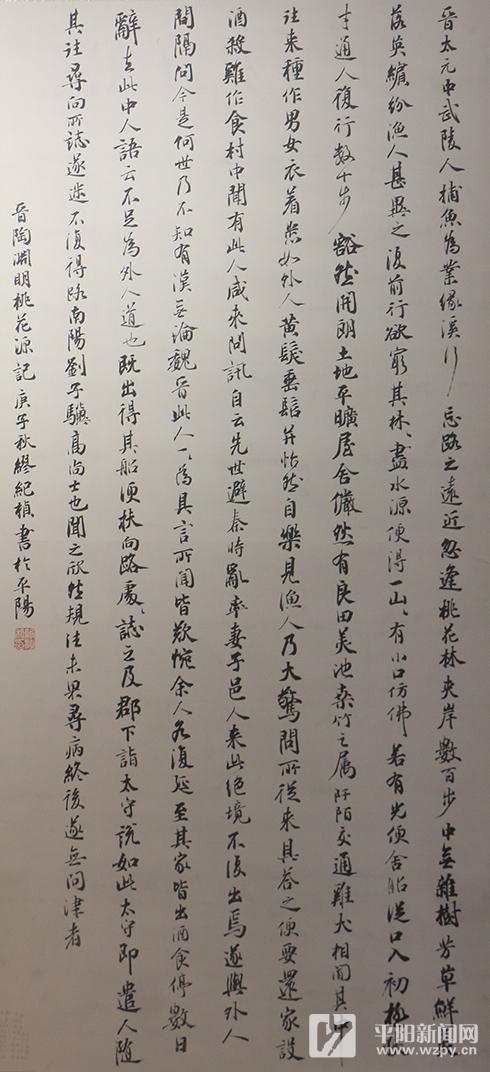 晋太元中武陵人捕魚為業緣溪行忘路之遠近忽逢桃花林夹岸數百步中無雜樹芳草鮮美
落英繽紛漁人甚異之復前行欲窮其林、盡水源便得一山、有小口仿佛若有光便舍船從口入初極狹
才通人復行數十步豁然開朗土地平曠屋舍儼然有良田美池桑竹之属阡陌交通雞犬相聞其中
往来種作男女衣着悉如外人黄髮垂髫并怡然自樂見漁人乃大驚問所從来具答之便要還家設
酒殺雞作食村中聞有此人咸来問訊自云先世避秦時亂率妻子邑人来此絕境不復出焉遂與外人
間隔問今是何世乃不知有漢無論魏晋此人一、為具言所聞皆歎惋余人各復延至其家皆出酒食停數日
辭去此中人語云不足為外人道也既出得其船便扶向路處、誌之及郡下詣太守説如此太守即遣人随
其往尋向所誌遂迷不復得路南陽劉子驥高尚士也聞之欣然規往未果尋病終後遂無問津者
晋陶淵明桃花源記庚子秋繆紀楨書於平陽
平阳新闻网
www.wzpy.cn